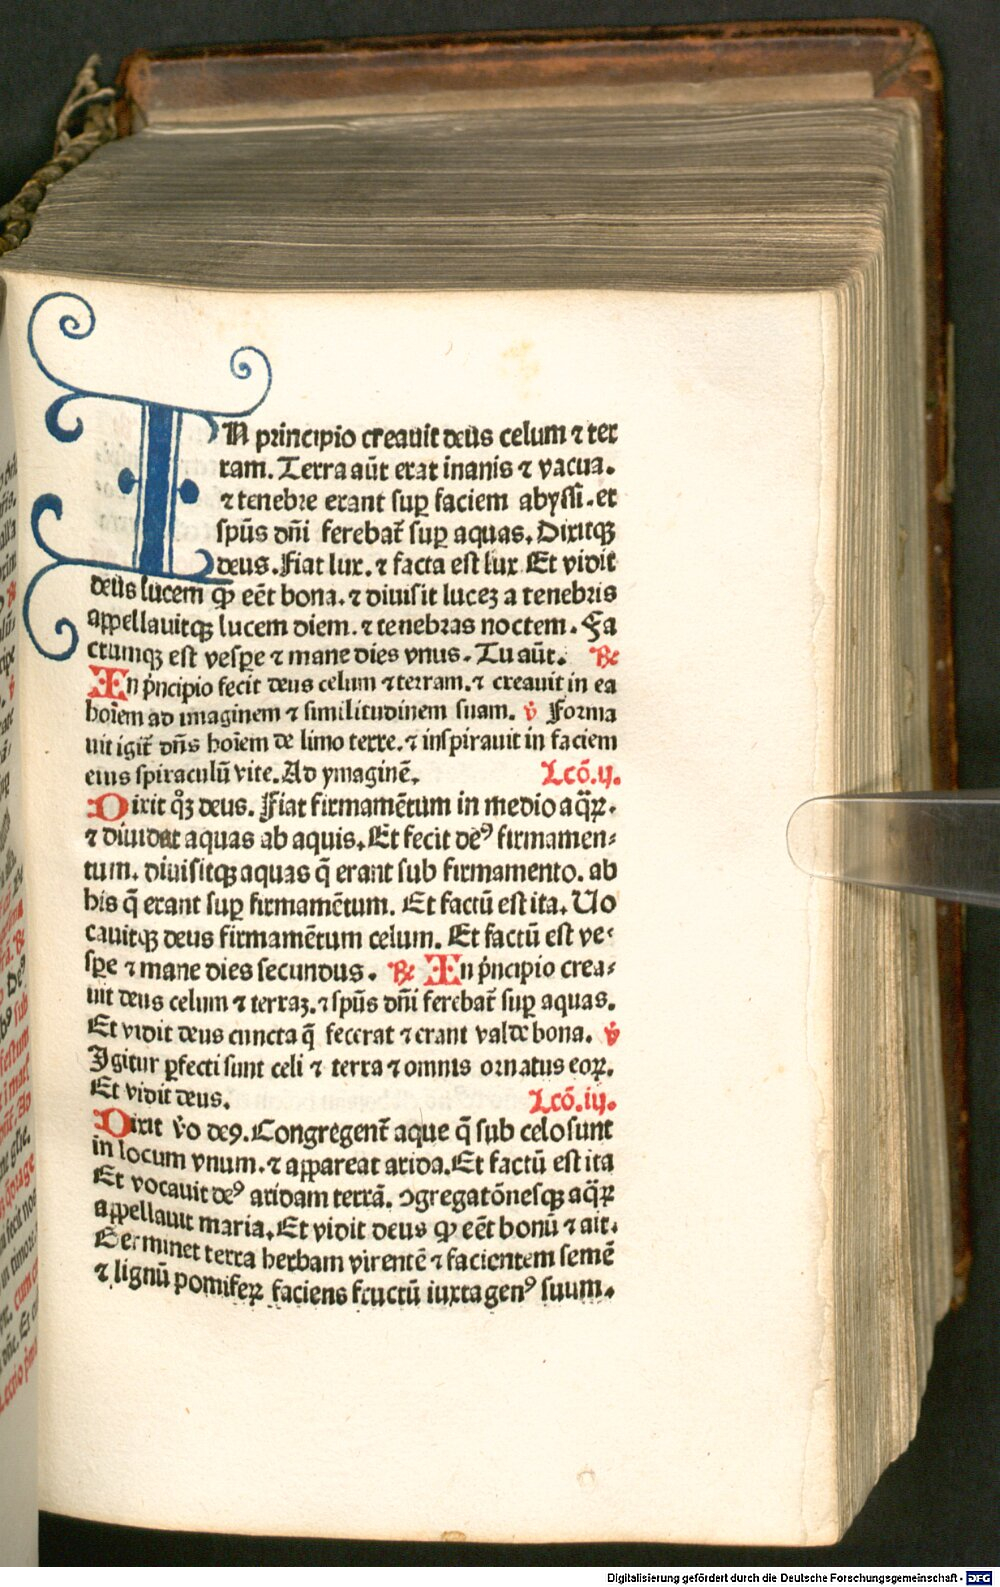 IN principio creauit deus celum ⁊ ter
ram. Terra aūt erat inanis ⁊ vacua.
⁊ tenebre erant suꝑ faciem abyssi. et
spūs dn̄i ferebat᷑ suꝑ aquas. Dixitqꝫ
deus. Fiat lux. ⁊ facta est lux. Et vidit
deus lucem ꝙ eēt bona. ⁊ diuisit luceꝫ a tenebris
appellauitqꝫ lucem diem. ⁊ tenebras noctem. Fa
ctumqꝫ est vesꝑe ⁊ mane dies vnus. Tu aūt. ℞
In p̄ncipio fecit deus celum ⁊ terram. ⁊ creauit in ea
hoīem ad imaginem ⁊ similitudinem suam. ℣ Forma
uit igit᷑ dn̄s hoīem de limo terre. ⁊ inspirauit in faciem
eius spiraculū vite. Ad ymaginē. Lcō. ij.
Dixit qꝫ deus. Fiat firmamētum in medio aq̄ꝝ.
⁊ diuidat aquas ab aquis. Et fecit deꝰ firmamen⸗
tum. diuisitqꝫ aquas q̄ erant sub firmamento. ab
his q̄ erant suꝑ firmamētum. Et factū est ita. Uo
cauitqꝫ deus firmamētum celum. Et factū est ve⸗
sꝑe ⁊ mane dies secundus. ℞ In p̄ncipio crea⸗
uit deus celum ⁊ terraꝫ. ⁊ spūs dn̄i ferebat᷑ suꝑ aquas.
Et vidit deus cuncta q̄ fecerat ⁊ erant valde bona. ℣
Igitur ꝑfecti sunt celi ⁊ terra ⁊ omnis ornatus eoꝝ.
Et vidit deus. Lcō. iij.
Dixit v̄o deꝰ. Congregent᷑ aque q̄ sub celo sunt
in locum vnum. ⁊ appareat arida. Et factū est ita
Et vocauit deꝰ aridam terrā. ꝯgregatōnesqꝫ aq̄ꝝ
appellauit maria. Et vidit deus ꝙ eēt bonū ⁊ ait.
Germinet terra herbam virentē ⁊ facientem semē
⁊ lignū pomifeꝝ faciens fructū iuxta genꝰ suum.
Digitalisierung gefördert durch die Deutsche Forschungsgemeinschaft - DFG